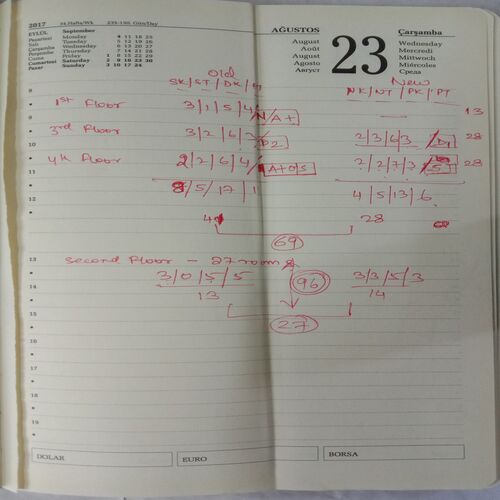 2017 34.Hafta/Wk 235-130. Gün/Day
EYLÜL September
Pazartesi Monday 4 11 18 25
Salı Tuesday 5 12 19 26
Çarşamba Wednesday 6 13 20 27
Perşembe Thursday 7 14 21 28
Cuma Friday 1 8 15 22 29
Cumartesi Saturday 2 9 16 23 30
Pazar Sunday 3 10 17 24
AĞUSTOS 23 Çarşamba
August Wednesday
Août Mercredi
August Mittwoch
Agosto Miércoles
Август Среда
Old New
SK/ST/DK/ NK/NT/PK/PT
8
1st Floor 3/1/5/4 N/A+ 13
9
3rd Floor 3/2/6/ D2 2/3/6/3 28
10
4th Floor 2/2/6/4/ A+O/S 2/2/7/3 28
11
8/5/17/1 4/5/13/6
12
28
69
13
second Floor - 27 room
14
3/0/5/5 96 3/3/5/3
13 14
15
27
16
17
18
19
DOLAR EURO BORSA